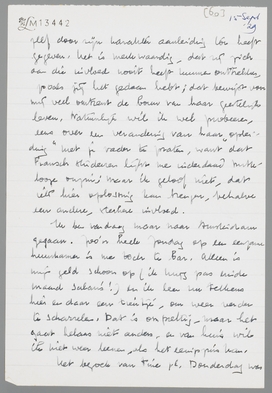 M13442
[60]
15-Sept
zelf door zijn karakter aanleiding toe heeft
gegeven. Het is merkwaardig, dat zij zich
aan die invloed nooit heeft kunnen onttrekken,
zooals jij het gedaan hebt; dat bewijst voor
mij veel omtrent de bouw van haar geestelijk
leven. Natuurlijk wil ik wel probeeren,
eens over een verandering van haar
met je vader te praten, want dat
Fransch studeeren lijkt me inderdaad
maar ik geloof niet, dat
hier oplossing kan brengen, behalve
een andere, invloed.
Ik ben vandaag maar naar Amsterdam
gegaan. Zoo'n heele Zondag op een eenzame
huurkamer is me toch te bar. Alleen is
mijn geld schoon op (ik krijg pas einde
maand salaris!) en ik leen nu telkens
hier en daar een tientje, om weer verder
te scharrelen. Dat is onprettig, maar het
gaat helaas niet anders, en van huis wil
ik niet meer leenen, als het eenigszins kan.
Het bezoek van Tine ph. Donderdag was